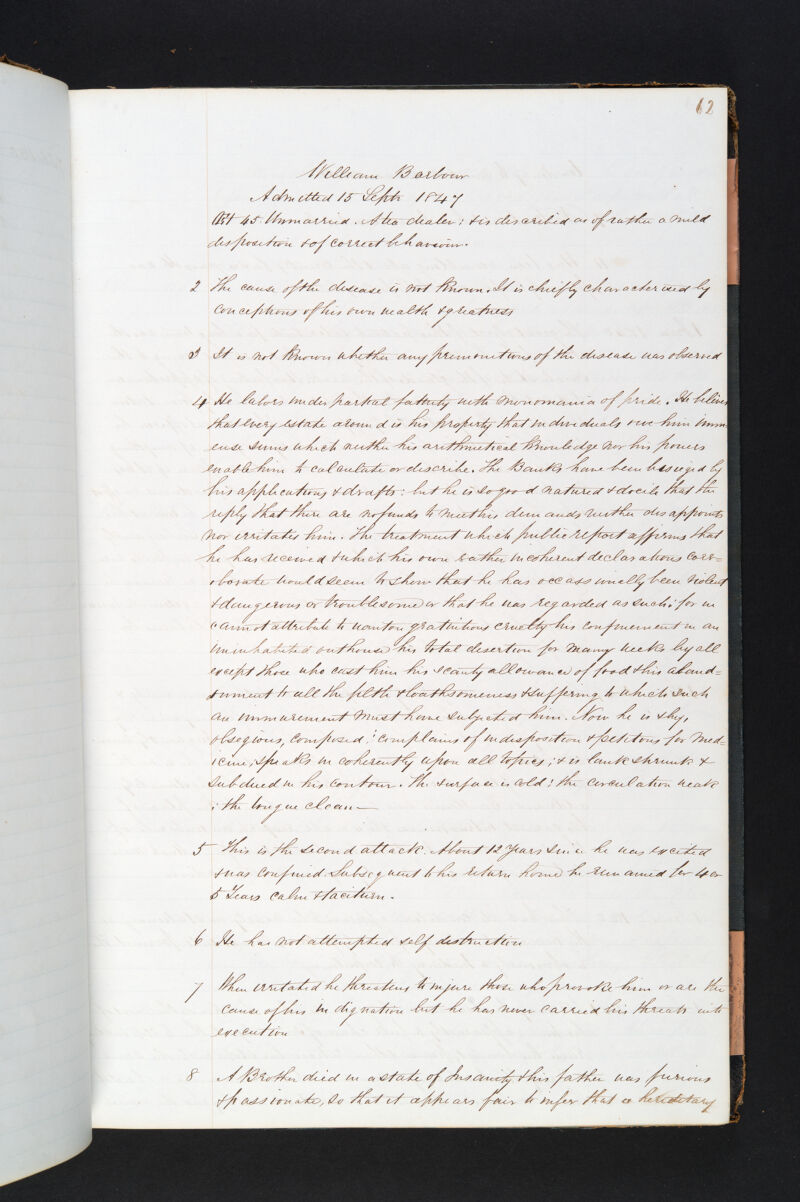 62
William Barbour
Admitted 15 Septr 1847
Ast 45 Unmarried. A tea dealer: & is described as of rather a mild
disposition & of correct behaviour.
2 The cause of the disease is not known. It is chiefly characterised by
conceptions of his own wealth & greatness
3 It is not known whether any premonitions of the disease was observed
4 He labors under partial fatuity with monomania of pride. He believes
that every estate around is his property that individuals owe him imm
ense sums which neither his arithmetical knowledge nor his powers
enable him to calculate or describe. The Banks have been besieged by
his applications & drafts: but he is so good natured & docile that the
reply that there are no funds to meet his demands neither disappoints
nor irritates him. The treatment which public report affirms that
he has received & which his own rather incoherent declarations corr=
oborate would seem to show that he has occassionelly been violent
& dangerous or troublesome or that he was regarded as such: for we
cannot attribute to wanton gratuitous cruelty his confinement in an
uninhabited outhouse his total desertion for many weeks by all
except those who cast him his scanty allowance of food & his aband=
onment to all the filth & loathsomeness & suffering to which such
an immurement must have subjected him. Now he is shy,
obseqious, composed: complains of indisposition & petitions for med=
icine; speaks incoherently upon all topics; & is lank shrunk &
subdued in his contour. The surface is cold: the circulation weak
: the tongue clean—
5 This is the second attack. About 12 Years since he was excited
& was confined. Subsequent to his return home he remained for 4 or
5 Years calm & taciturn.
6 He has not attempted self destruction
7 When irritated he threatens to injure those who provoke him or are the
cause of his indignation but he has never carried his threats into
execution
8 A Brother died in a state of Insanity & his father was furious
& passionate, so that it appears fair to infer that a hereditary